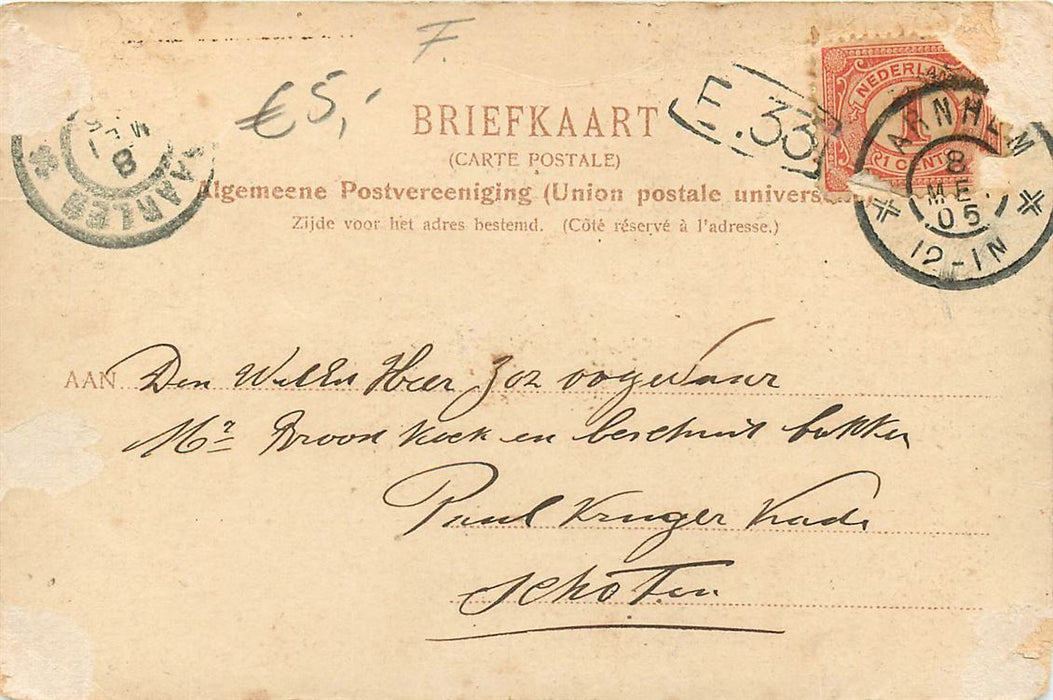 F.
€5,-
BRIEFKAART
(CARTE POSTALE)
Algemeene Postvereeniging (Union postale univers
Zijde voor het adres bestemd. (Côté réservé à l'adresse.)
F.33
NEDERLAN
1
1 CENT
ARNHEM
8
ME
05
12-IN
HAARLEM
8
ME
AAN Den WelEd Heer J oz oogevaar
Mr Brood Koek en beschuit bakker
Paul Kruger Kade
Schoten